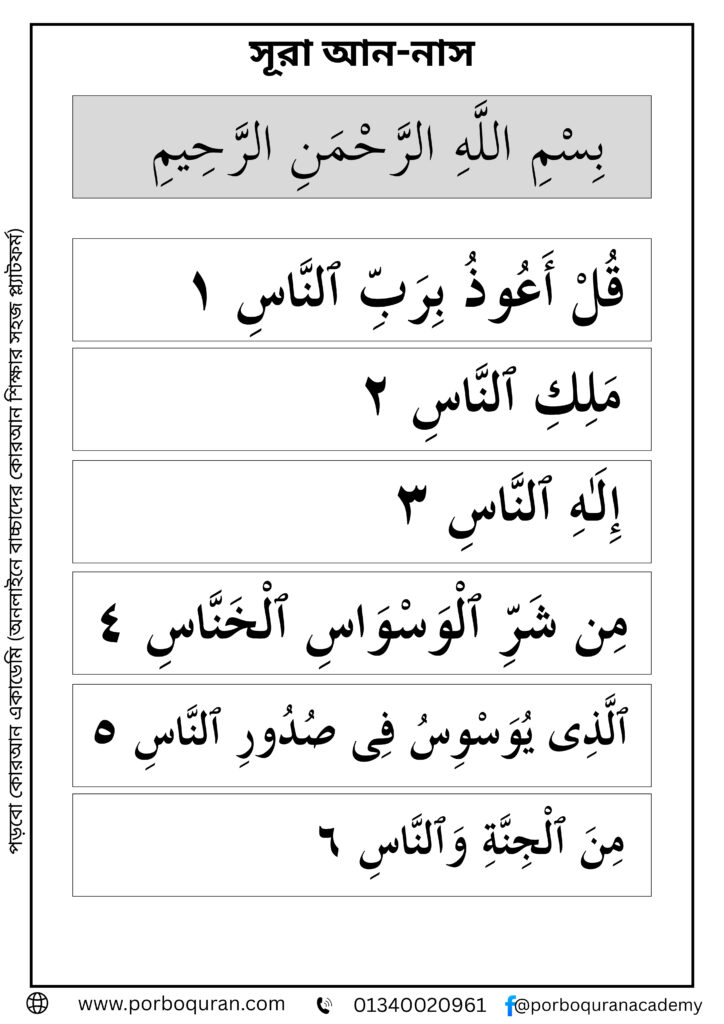 সূরা আন-নাস
بِسْمِ اللَّهِ الرَّحْمَنِ الرَّحِيمِ
قُلْ أَعُوذُ بِرَبِّ ٱلنَّاسِ ١
مَلِكِ ٱلنَّاسِ ٢
إِلَـٰهِ ٱلنَّاسِ ٣
مِن شَرِّ ٱلْوَسْوَاسِ ٱلْخَنَّاسِ ٤
ٱلَّذِى يُوَسْوِسُ فِى صُدُورِ ٱلنَّاسِ ٥
مِنَ ٱلْجِنَّةِ وَٱلنَّاسِ ٦
পড়বো কোরআন একাডেমি (অনলাইনে বাচ্চাদের কোরআন শিক্ষার সহজ প্ল্যাটফর্ম)
www.porboquran.com 01340020961 @porboquranacademy